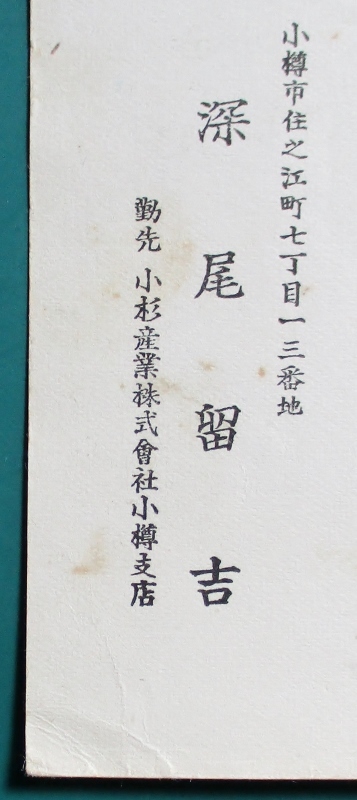 小樽市住之江町七丁目一三番地
深尾留吉
勤先 小杉産業株式會社小樽支店